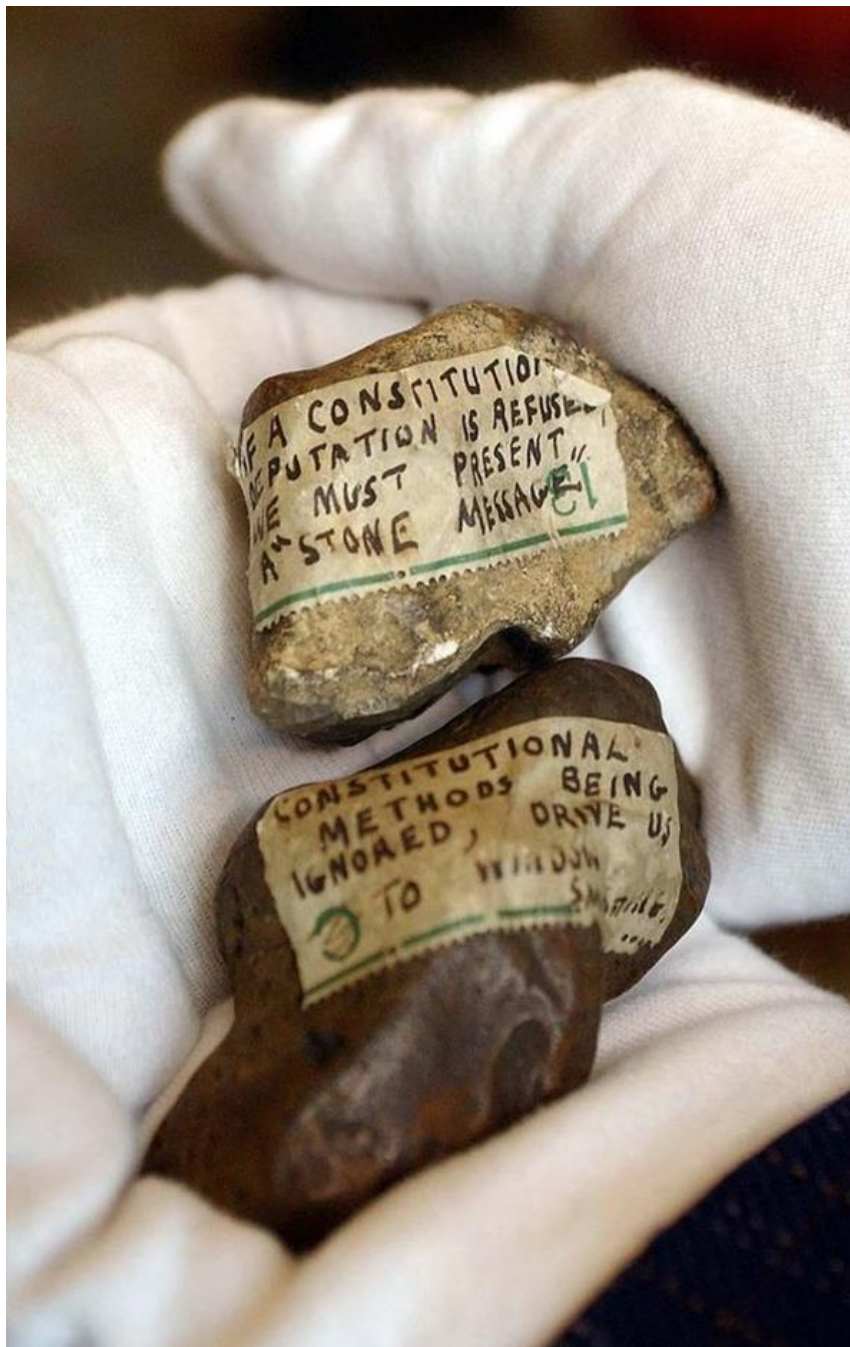 IF A CONSTITUTION
DEPUTATION IS REFUSED,
WE MUST PRESENT
A "STONE MESSAGE"
15
CONSTITUTIONAL
METHODS BEING
IGNORED, DRIVE US
TO WINDOW